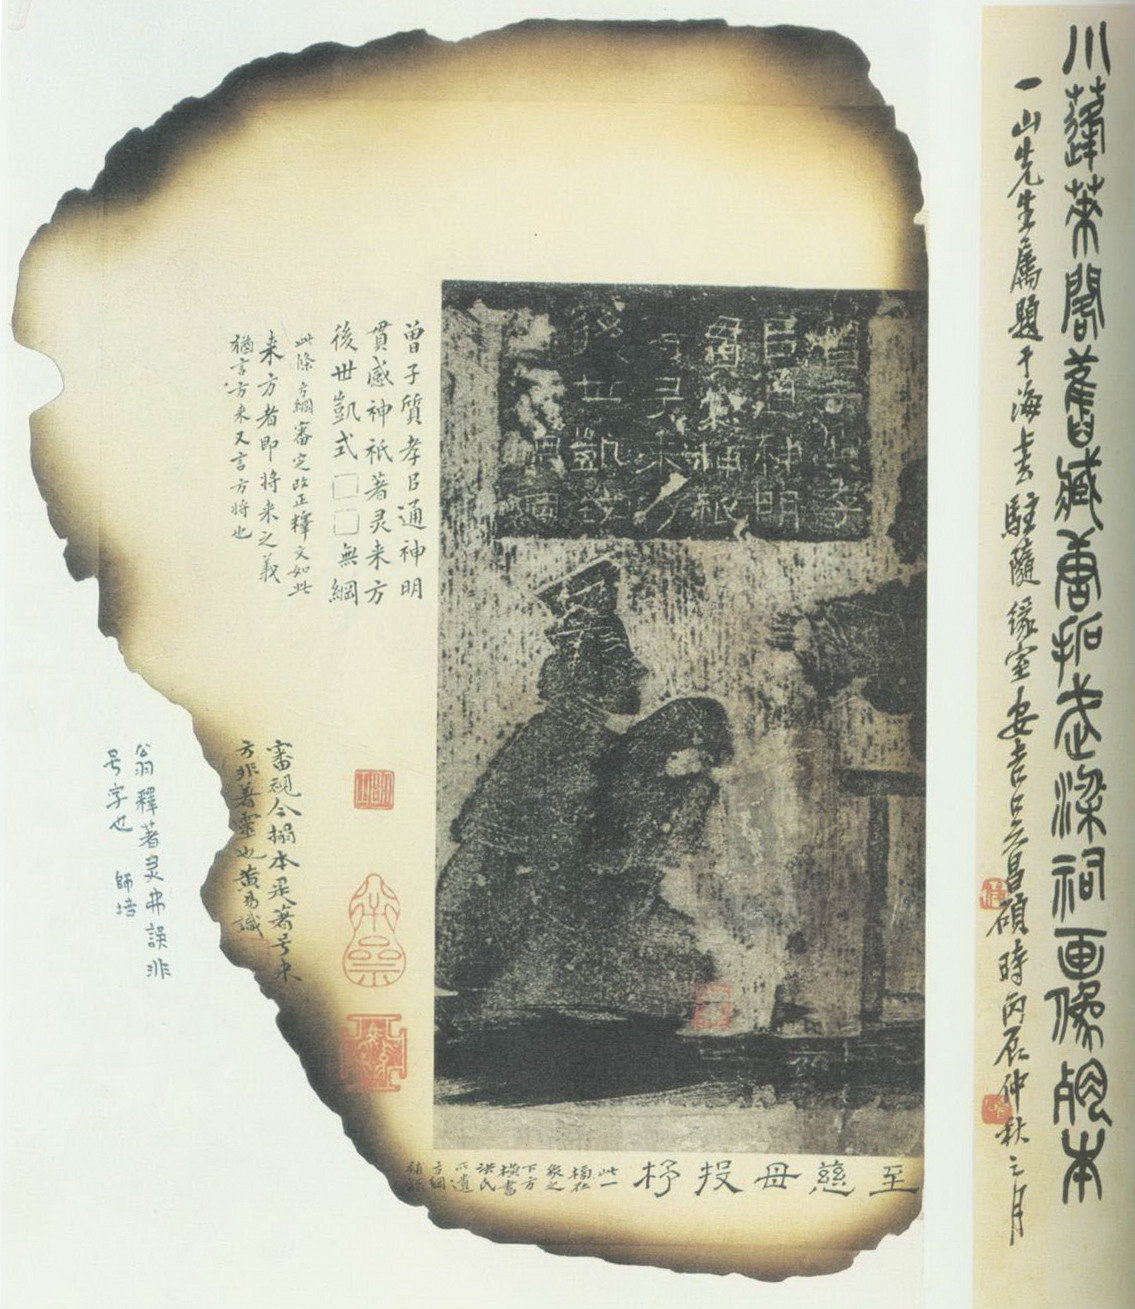 川蓬莱閣舊藏唐拓武梁祠画像殘本
一山先生属題于海上去駐隨緣室安吉吳昌碩時丙辰仲秋之月
曾子質孝㠯通神明
貫感神祇著灵来方
後世凱式□□無綱
此條方綱審定改正釋文如此
来方者即將来之義
猶言方来又言方將也
審視今搨本是著号来
方非著靈也黄易識
翁釋著灵弗誤非
号字也 師培
至慈母投杼
此一
榻在
象之
下方
横書
洪氏
所遺
方綱